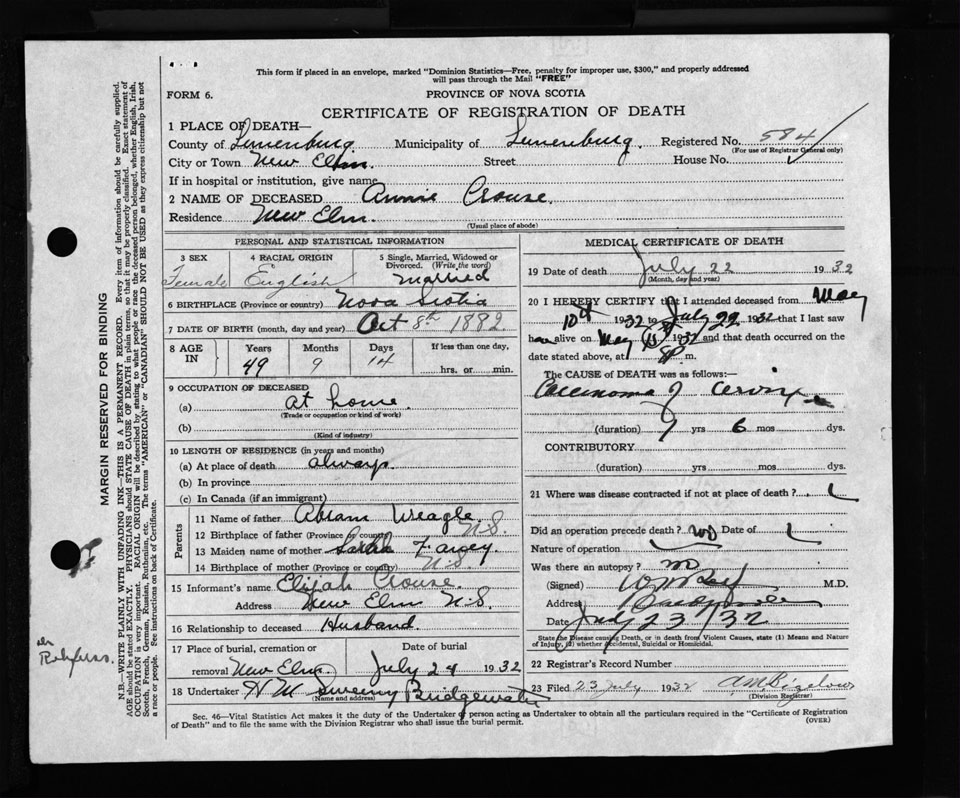 This form if placed in an envelope, marked "Dominion Statistics—Free, penalty for improper use, $300," and properly addressed
will pass through the Mail "FREE"
FORM 6.
PROVINCE OF NOVA SCOTIA
CERTIFICATE OF REGISTRATION OF DEATH
1 PLACE OF DEATH—
County of Lunenburg Municipality of Lunenburg Registered No. 584
(For use of Registrar General only)
City or Town New Elm Street House No.
If in hospital or institution, give name
2 NAME OF DECEASED Annie Crouse.
Residence New Elm.
(Usual place of abode)
PERSONAL AND STATISTICAL INFORMATION
3 SEX 4 RACIAL ORIGIN 5 Single, Married, Widowed or
Divorced. (Write the word)
Female English Married
6 BIRTHPLACE (Province or country) Nova Scotia
7 DATE OF BIRTH (month, day and year) Oct 8th 1882
8 AGE IN Years Months Days If less than one day,
49 9 14 hrs. or min.
9 OCCUPATION OF DECEASED
(a) At home.
(Trade or occupation or kind of work)
(b)
(Kind of industry)
10 LENGTH OF RESIDENCE (in years and months)
(a) At place of death always.
(b) In province
(c) In Canada (if an immigrant)
Parents
11 Name of father Abram Weagle
12 Birthplace of father (Province or country) N.S.
13 Maiden name of mother Sarah
14 Birthplace of mother (Province or country) N.S.
15 Informant's name Elijah Crouse
Address New Elm N.S.
16 Relationship to deceased Husband.
17 Place of burial, cremation or Date of burial
removal New Elm. July 24 1932
18 Undertaker H W Sweeny Bridgewater
(Name and address)
MEDICAL CERTIFICATE OF DEATH
19 Date of death July 22 1932
(Month, day and year)
20 I HEREBY CERTIFY that I attended deceased from May
10th 1932 to July 22 1932 that I last saw
h alive on May 1932 and that death occurred on the
date stated above, at m.
The CAUSE OF DEATH was as follows:
Carcinoma of Cervix
(duration) yrs 6 mos dys.
CONTRIBUTORY
(duration) yrs mos dys.
21 Where was disease contracted if not at place of death?
Did an operation precede death? no Date of
Nature of operation
Was there an autopsy? no
(Signed) M.D.
Address Bridgewater
Date July 23/32
State the Disease causing Death, or in death from Violent Causes, state (1) Means and Nature
of Injury, (2) whether Accidental, Suicidal or Homicidal.
22 Registrar's Record Number
23 Filed 23 July 1932 A.M. Bigelow
(Division Registrar)
Sec. 46—Vital Statistics Act makes it the duty of the Undertaker or person acting as Undertaker to obtain all the particulars required in the "Certificate of Registration
of Death" and to file the same with the Division Registrar who shall issue the burial permit.
(OVER)
MARGIN RESERVED FOR BINDING
N.B.—WRITE PLAINLY WITH UNFADING INK—THIS IS A PERMANENT RECORD. Every item of information should be carefully supplied.
AGE should be stated EXACTLY. PHYSICIANS should STATE CAUSE OF DEATH in plain terms, so that it may be properly classified. Exact statement of
OCCUPATION is very important. RACIAL ORIGIN will be described by stating to what people or race the deceased person belonged, whether English, Irish,
Scotch, French, German, Russian, Ruthenian, etc. The terms "AMERICAN" or "CANADIAN" SHOULD NOT BE USED as they express citizenship but not
a race or people. See instructions on back of Certificate.